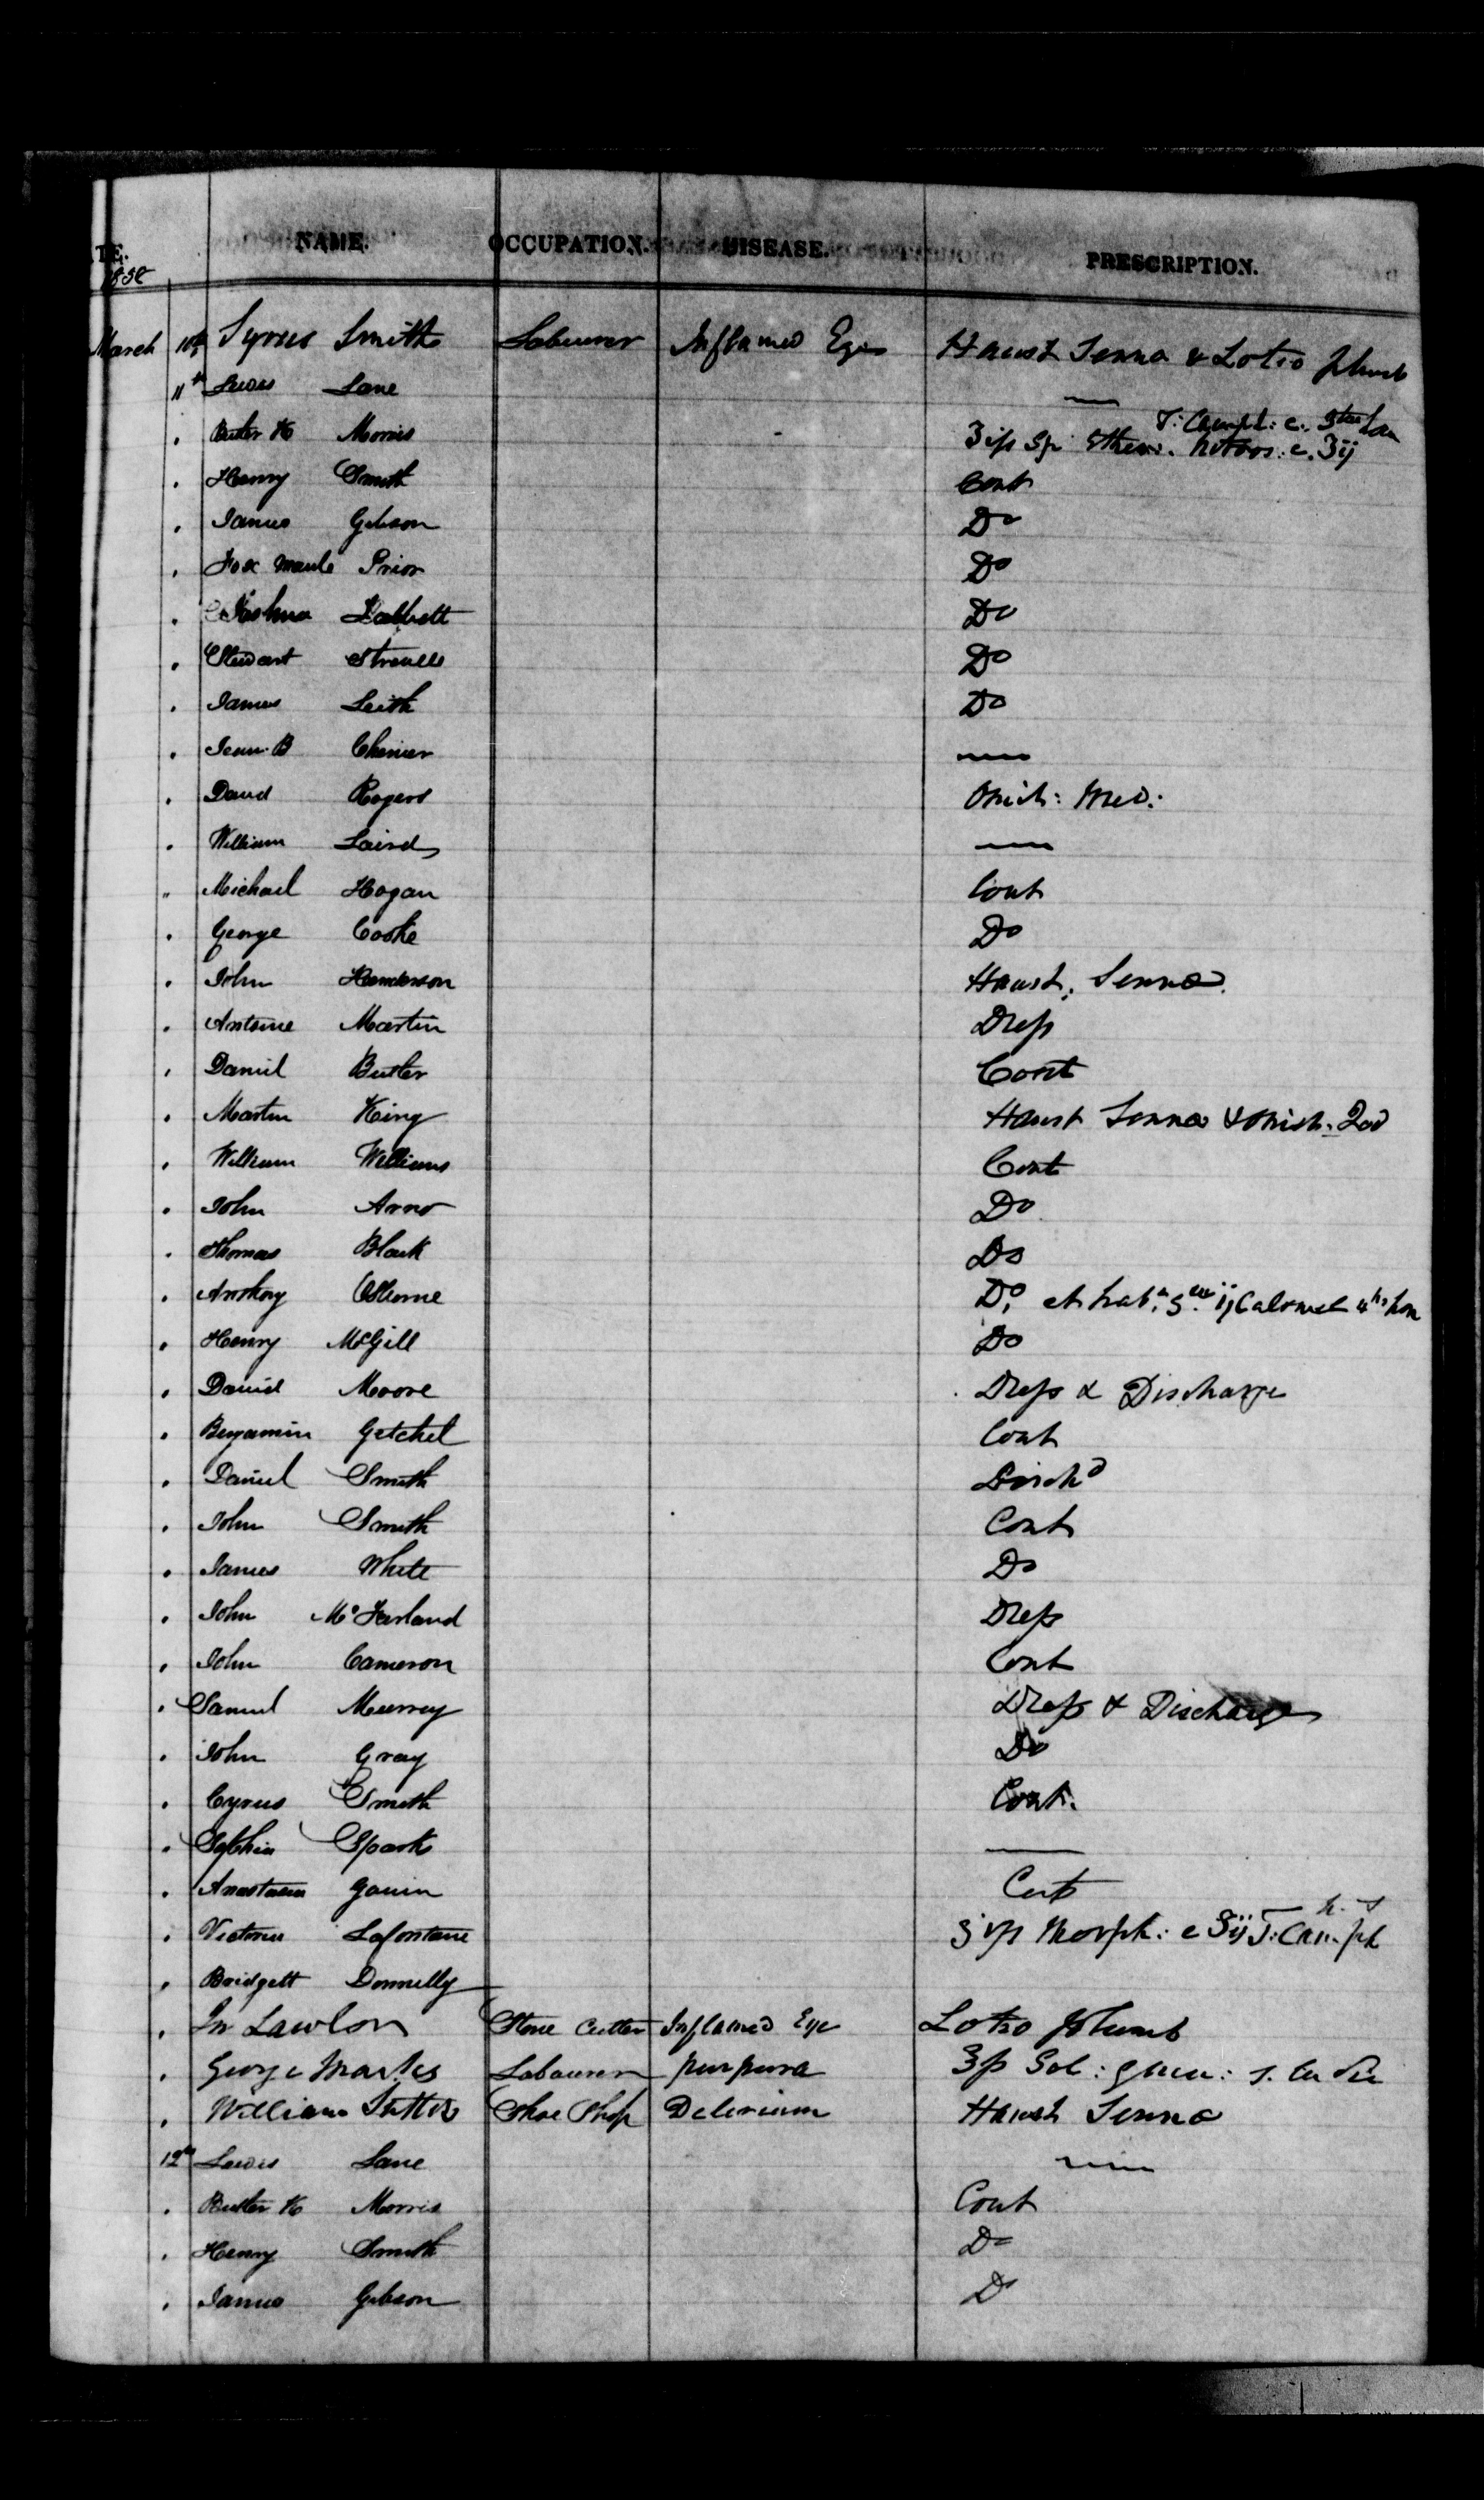 TE. NAME. OCCUPATION. DISEASE. PRESCRIPTION.
1858
March 10th Syrus Smith Labourer Inflamed Eyes Haust Senna & Lotio Plumb
11th Lewis Lane —
" Butler H Morris T: Camph: c.
Sp Ether. Nitros: c. ʒij
" Henry Smith Cont
" James Gibson Do
" Fox Maule Prior Do
" Joshua Do
" Stewart Do
" James Leith Do
" Jean B Chenier —
" David Rogers Omit: Med:
" William Laird —
" Michael Hogan Cont
" George Cooke Do
" John Henderson Haust. Senna
" Antoine Martin Dress
" Daniel Butler Cont
" Martin King Haust Senna &
" William Williams Cont
" John Arno Do
" Thomas Black Do
" Anthony Osborne Do, et ij Calomel 4h
" Henry McGill Do
" David Moore Dress & Discharge
" Benjamin Getchel Cont
" Daniel Smith Disch'd
" John Smith Cont
" James White Do
" John McFarland Dress
" John Cameron Cont
" Samuel Murray Dress & Discharge
" John Gray Do
" Cyrus Smith Cont.
" Sparks —
" Anastasia Cont
" Victoria Lafontaine Morph: c ʒij T: Camph
" Bridgett Donnelly
" Jn Lawlor Stone Cutter Inflamed Eye Lotio Plumb
" George Marks Labourer purpura Sol:
" William Shoe Shop Delerium Haust Senna
12th Lewis Lane —
" Butler H Morris Cont
" Henry Smith Do
" James Gibson Do